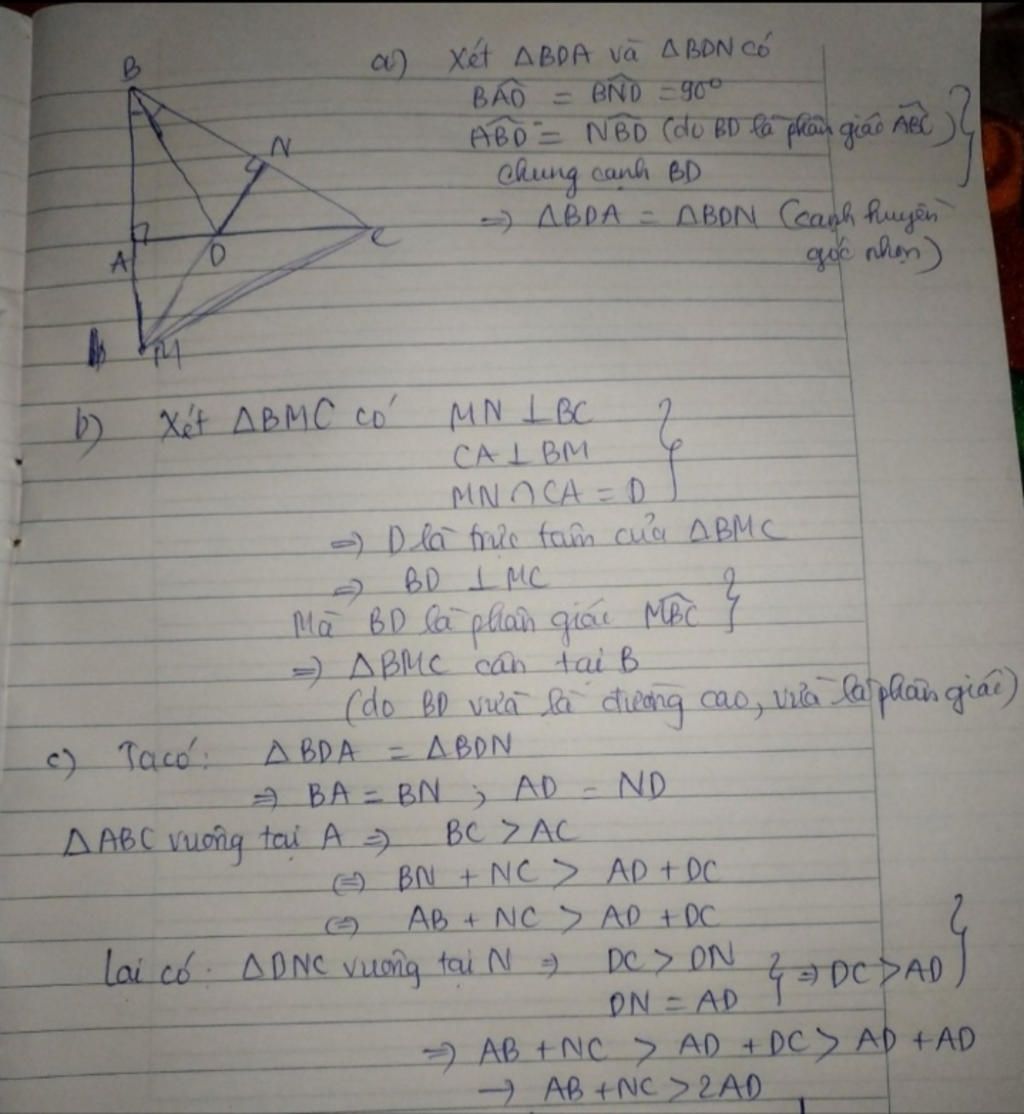 B
N
A
D
C
M
a) Xét ΔBDA và ΔBDN có
BÂD = BN̂D = 90°
AB̂D = NB̂D (do BD là phân giác AB̂C)
chung cạnh BD
=> ΔBDA = ΔBDN (cạnh huyền
góc nhọn)
b) Xét ΔBMC có MN ⊥ BC
CA ⊥ BM
MN ∩ CA = D
=> D là trực tâm của ΔBMC
=> BD ⊥ MC
Mà BD là phân giác MB̂C
=> ΔBMC cân tại B
(do BD vừa là đường cao, vừa là phân giác)
c) Ta có: ΔBDA = ΔBDN
=> BA = BN ; AD = ND
ΔABC vuông tại A => BC > AC
<=> BN + NC > AD + DC
<=> AB + NC > AD + DC
Lại có: ΔDNC vuông tại N => DC > DN
DN = AD } => DC > AD
=> AB + NC > AD + DC > AD + AD
→ AB + NC > 2AD